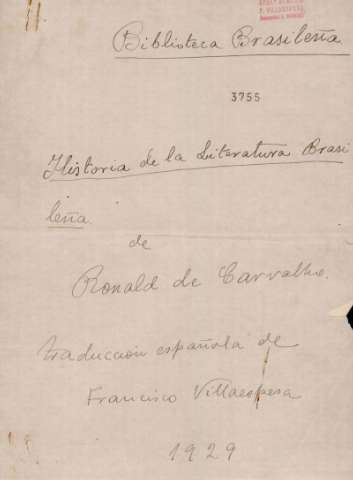 Biblioteca Brasileña
3755
Historia de la Literatura Brasi
leña
de
Ronald de Carvalho.
traducción española de
Francisco Villaespesa
1929